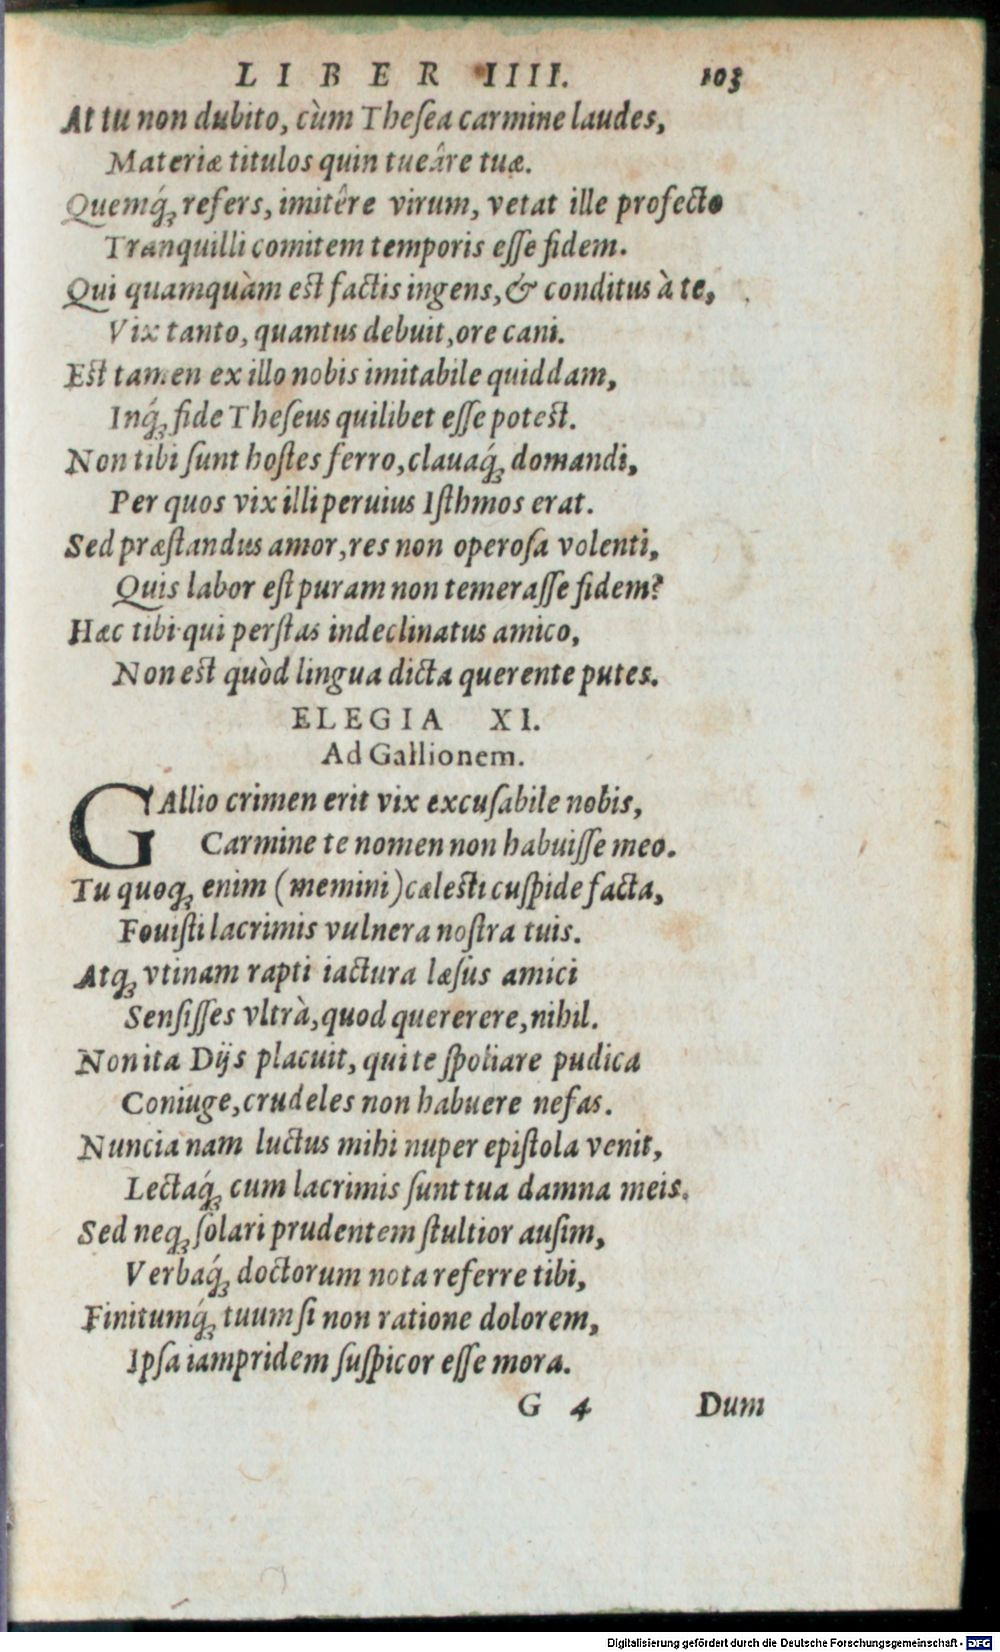 LIBER IIII. 103
At tu non dubito, cùm Theſea carmine laudes,
Materiæ titulos quin tueâre tuæ.
Quemq́; refers, imitêre virum, vetat ille profecto
Tranquilli comitem temporis eſſe fidem.
Qui quamquàm est factis ingens, & conditus à te,
Vix tanto, quantus debuit, ore cani.
Est tamen ex illo nobis imitabile quiddam,
Inq́; fide Theſeus quilibet eſſe potest.
Non tibi ſunt hoſtes ferro, clauaq́; domandi,
Per quos vix illi peruius Iſthmos erat.
Sed præſtandus amor, res non operoſa volenti,
Quis labor eſt puram non temeraſſe fidem?
Hæc tibi qui perſtas indeclinatus amico,
Non est quòd lingua dicta querente putes.
ELEGIA XI.
Ad Gallionem.
GAllio crimen erit vix excuſabile nobis,
Carmine te nomen non habuiſſe meo.
Tu quoq; enim (memini) cælesti cuſpide facta,
Fouiſti lacrimis vulnera noſtra tuis.
Atq; vtinam rapti iactura læſus amici
Senſiſſes vltrà, quod quererere, nihil.
Non ita Dijs placuit, qui te ſpoliare pudica
Coniuge, crudeles non habuere nefas.
Nuncia nam luctus mihi nuper epiſtola venit,
Lectaq́; cum lacrimis ſunt tua damna meis.
Sed neq; ſolari prudentem ſtultior auſim,
Verbaq́; doctorum nota referre tibi,
Finitumq́; tuum ſi non ratione dolorem,
Ipſa iampridem ſuſpicor eſſe mora.
G 4 Dum
Digitalisierung gefördert durch die Deutsche Forschungsgemeinschaft - DFG